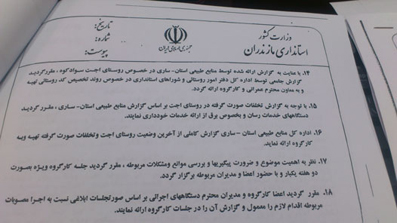 تاریخ:
شماره:
پیوست:
جمهوری اسلامی ایران
وزارت کشور
استانداری مازندران
۱۴. با عنایت به گزارش ارائه شده توسط منابع طبیعی استان - ساری در خصوص روستای اجت سوادکوه ، مقررگردید
گزارش جامعی توسط اداره کل دفتر امور روستائی و شوراهای استانداری در خصوص روند تخصیص کد روستائی تهیه
و به معاون محترم عمرانی و کارگروه ارائه گردد.
۱۵. با توجه به گزارش تخلفات صورت گرفته در روستای اجت بر اساس گزارش منابع طبیعی استان - ساری ، مقرر گردید
دستگاههای خدمات رسان و بخصوص برق از ارائه خدمات خودداری نمایند.
۱۶. اداره کل منابع طبیعی استان - ساری گزارش کاملی از آخرین وضعیت روستای اجت وتخلفات صورت گرفته تهیه وبه
کارگروه ارائه نماید.
۱۷. نظر به اهمیت موضوع و ضرورت پیگیریها و بررسی موانع ومشکلات مربوطه ، مقرر گردید جلسه کارگروه ویژه بصورت
دو هفته یکبار و با حضور اعضا و مدیران محترم مربوطه برگزار گردد.
۱۸. مقرر گردید اعضا کارگروه و مدیران محترم دستگاههای اجرائی بر اساس صورتجلسات ابلاغی نسبت به اجرا مصوبات
مربوطه اقدام لازم را معمول و گزارش آن را در جلسات کارگروه ارائه نمایند.